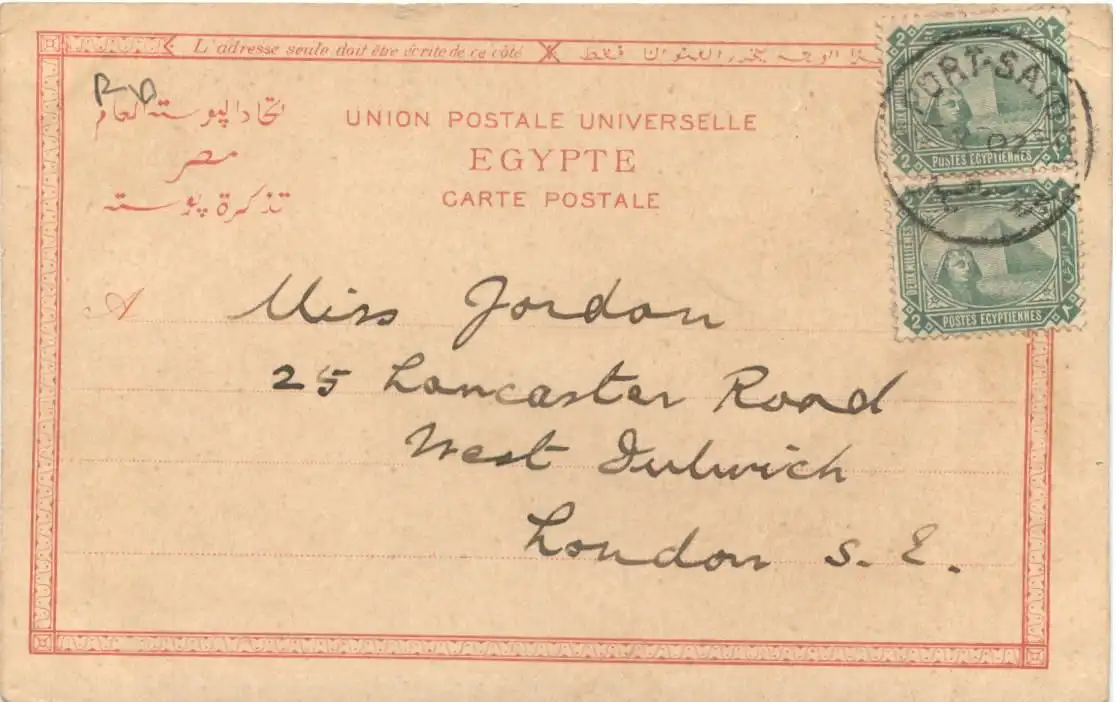 L'adresse seule doit être écrite de ce côté
اتحاد البوسته العام
مصر
تذكرة بوسته
UNION POSTALE UNIVERSELLE
EGYPTE
CARTE POSTALE
PORT-SAID
02
DEUX MILLIEMES
2
2
POSTES EGYPTIENNES
DEUX MILLIEMES
2
POSTES EGYPTIENNES
A Miss Jordan
25 Lancaster Road
West Dulwich
London S. E.